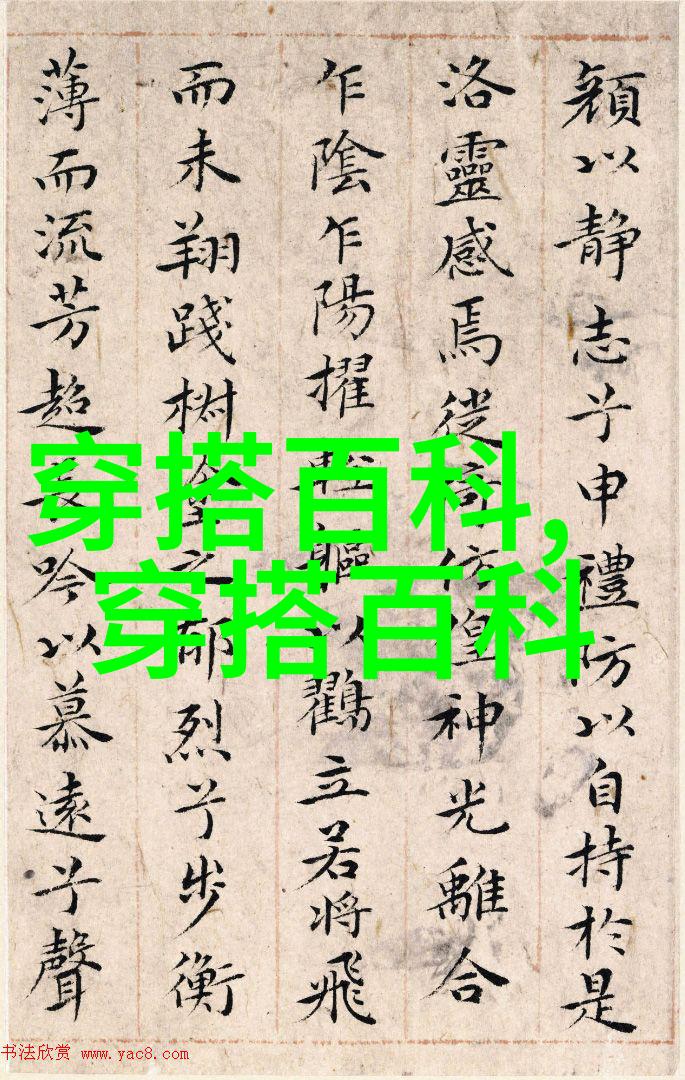 顏以静志兮申禮防以自持於是
洛靈感焉徙倚仿偟神光離合
乍陰乍陽擢輕軀以鸖立若將飛
而未翔踐樹塗之郁烈兮步衡
薄而流芳超長吟以慕遠兮聲
穿搭百科,
穿搭百科
书法欣赏 www.yac8.com